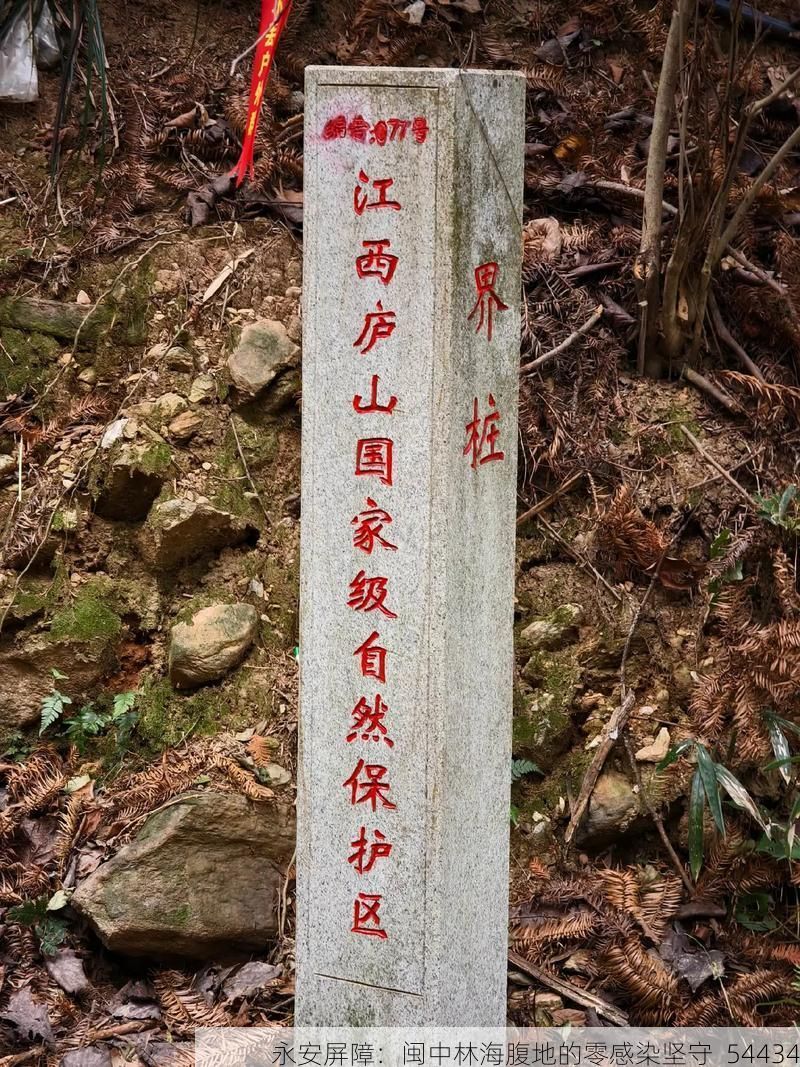 编号:077号
江西庐山国家级自然保护区
界桩
永安屏障：闽中林海腹地的零感染坚守 54434